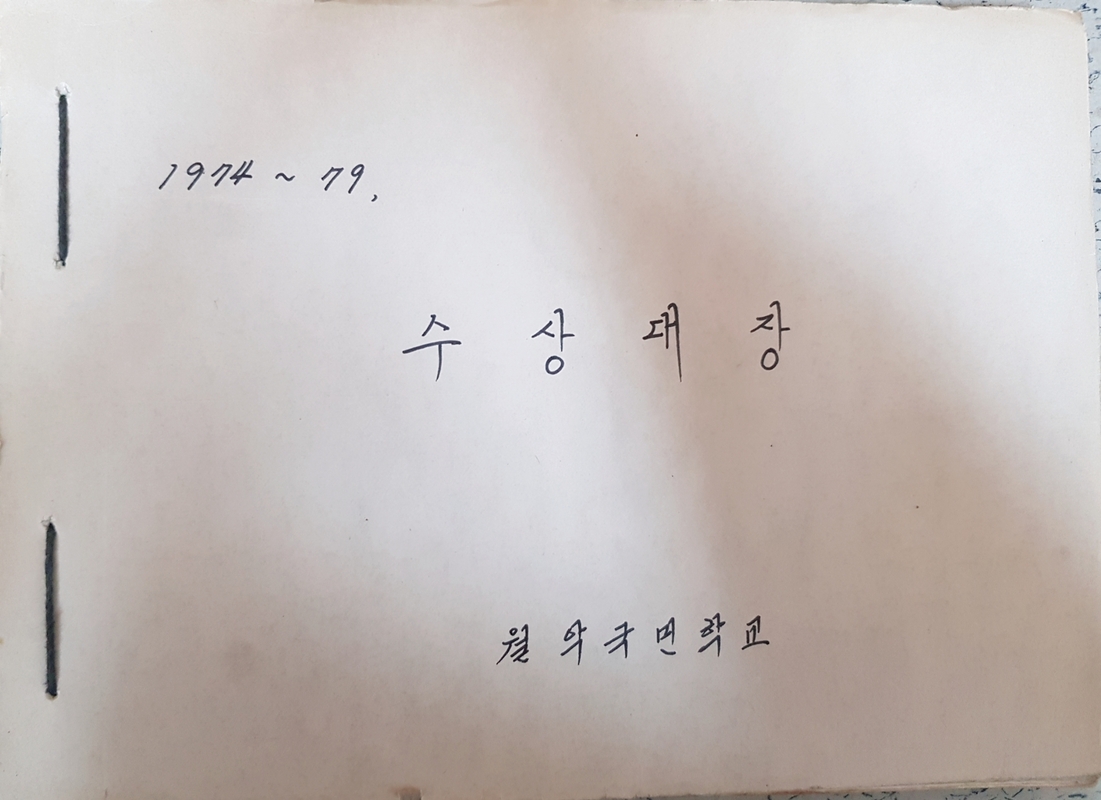 1974 ~ 79.
수 상 대 장
월 악 국 민 학 교